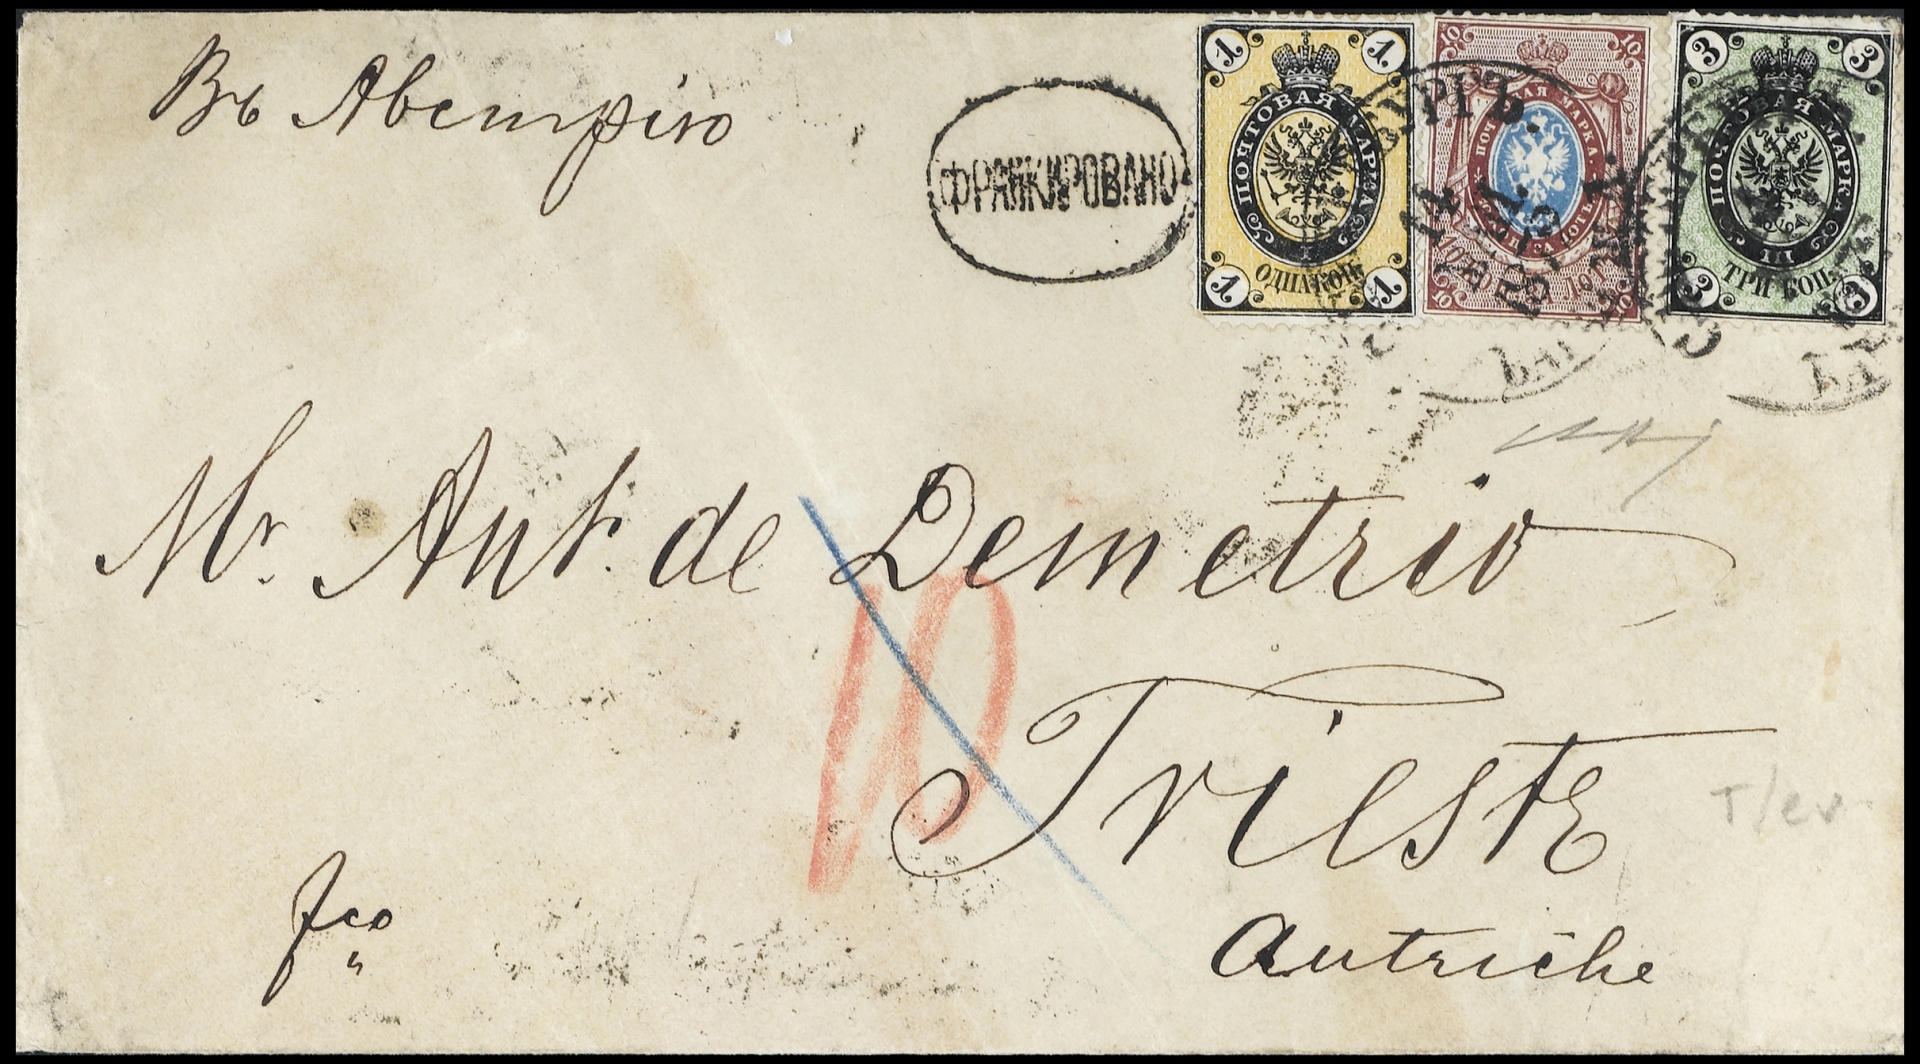 Въ Австрію
ФРАНКИРОВАНО
1 1
ПОЧТОВАЯ МАРКА
I
ОДНА КОП.
1 1
10 10
ПОЧТОВАЯ МАРКА.
10 10
3 3
ПОЧТОВАЯ МАРКА
III
ТРИ КОП.
3 3
Mr. Ant. de Demetrio
10
Trieste
T/ev
fco
Autriche